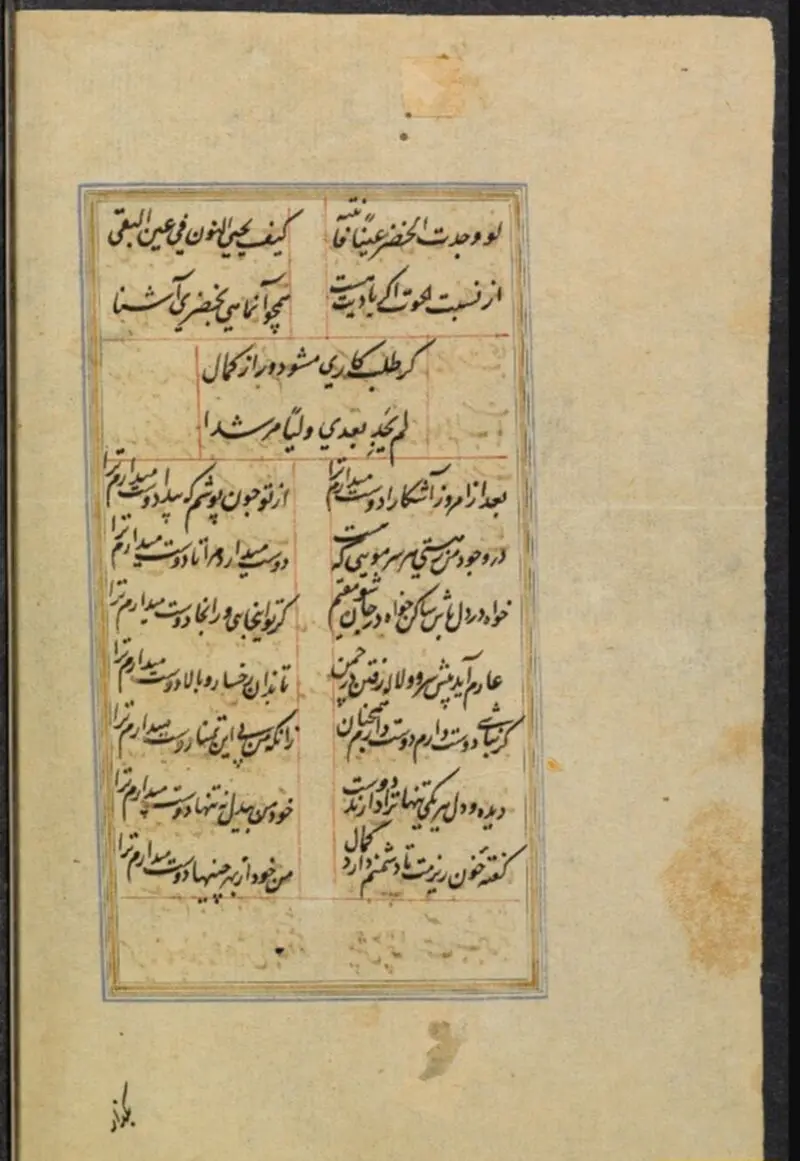 لو وجدت الخضر عینًا فاتته کیف یحیی النون فی عین البقی
از نسبت الحوت اگر یادیت هست همچو آن ماهی بخضری آشنا
کر طلب کاری مشو دور از کمال
لم یجد بعدی ولیًا مرشدا
بعد ازامروز آشکارا دوست میدارم ترا از تو چون پوشم که پیدا دوست میدارم ترا
در وجود من ز هستی هر سر مویی که هست دوست میدارد مرا تا دوست میدارم ترا
خواه در دل باش ساکن خواه در جان شو مقیم کر تو اینجایی ور آنجا دوست میدارم ترا
عارم آید پیش سرو و لاله رفتن در چمن تا بدان رخسار و بالا دوست میدارم ترا
کر نباشی دوست دارم دوست دارم همچنان زانکه من بی این تمنا دوست میدارم ترا
دیده و دل هر یکی تنها ترا دارند دوست خود من بیدل نه تنها دوست میدارم ترا
کفتهٔ خون ریزمت تا دشمنم دارد کمال من خود از بهر چنینها دوست میدارم ترا
بکذار